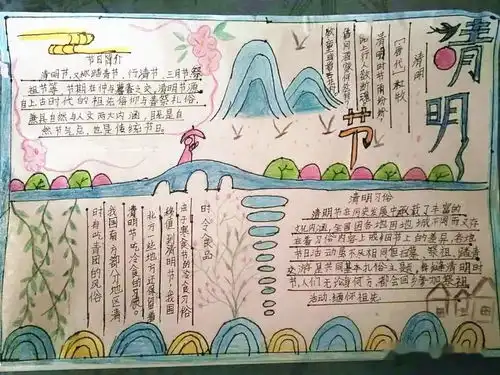 清明节
节日简介
清明节,又称踏青节、行清节、三月节、祭
祖节等,节期在仲春与暮春之交。清明节源
自上古时代的祖先信仰与春祭礼俗,
兼具自然与人文两大内涵,既是自
然节气点,也是传统节日。
清明
【唐代】杜牧
清明时节雨纷纷
路上行人欲断魂
借问酒家何处有
牧童遥指杏花村
时令食品
由于寒食节的冷食习俗
移植到清明节,我国
北方一些地方还保留着
清明节吃冷食的习惯。
我国有大部分地区清
时有吃青团的风俗
清明习俗
清明节在历史发展中承载了丰富的
文化内涵,全国因各地因地域不同而又存
在着习俗内容上或细节上的差异,各地
节日活动虽不尽相同但扫墓、祭祖、踏青
郊游是共同基本礼俗主题,每逢清明时
节,人们无论身何方,都会回乡参加祭祖
活动,缅怀祖先。